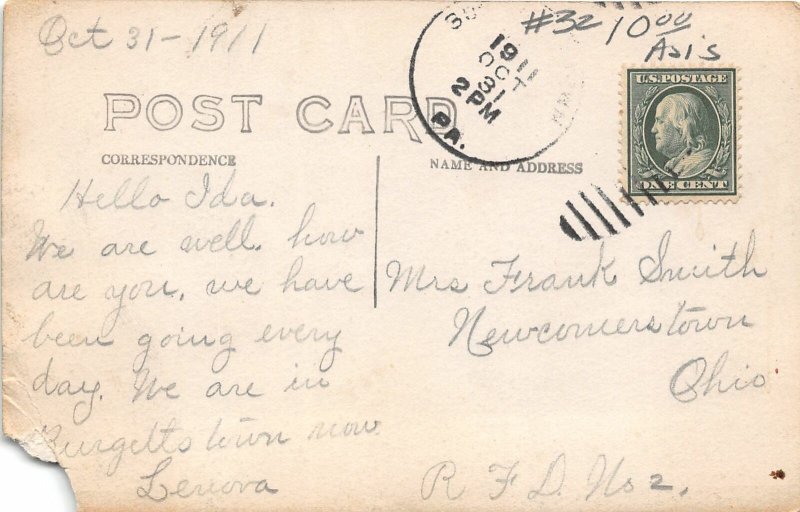 Oct 31-1911
#32 10.00
As is
1911
OCT
31
2 PM
PA.
U.S. POSTAGE
ONE CENT
POST CARD
CORRESPONDENCE
NAME AND ADDRESS
Hello Ida.
We are well. how
are you. we have
been going every
day. We are in
Burgettstown now
Lenora
Mrs Frank Smith
Newcomerstown
Ohio
R F D. No 2.